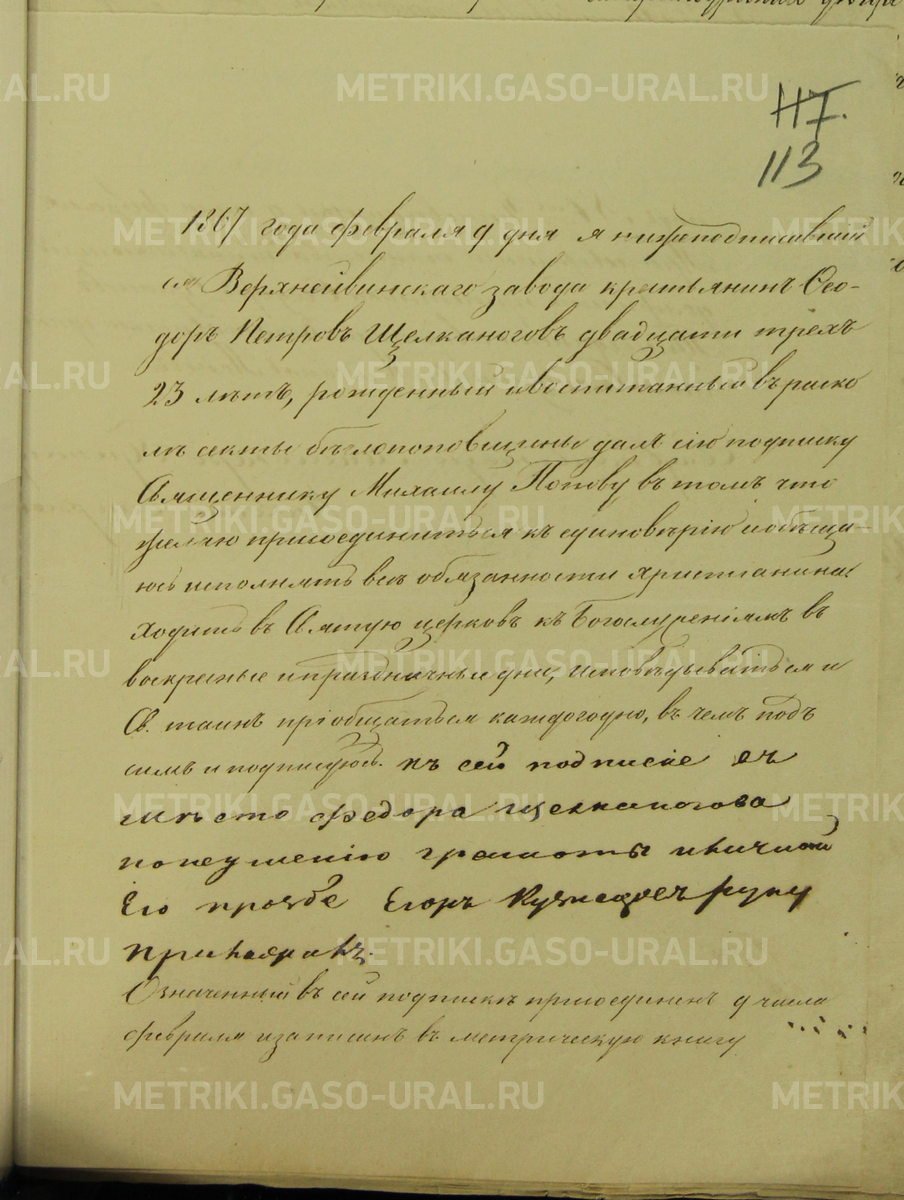 117.
113
1867 года февраля 9 дня я нижеподписавшій
ся Верхнейвинскаго завода крестьянинъ Ѳео-
доръ Петровъ Щелканоговъ двадцати трехъ
23 лѣтъ, рожденный и воспитанный въ раско
лѣ секты бѣглопоповщины далъ сію подписку
Священнику Михаилу Попову въ томъ что
желаю присоединиться къ единовѣрію и обѣща-
юсь исполнять всѣ обязанности христіанина:
ходить въ Святую церковь къ Богослуженіямъ въ
воскресные и праздничные дни, исповѣдываться и
Св. таинъ пріобщаться каждогодно, въ чемъ подъ
симъ и подписуюсь. къ сей подписке въ
място Федора Щелканогова
по неумению грамоты и личной
Его прозбе Егоръ Кузнецовъ руку
приложилъ.
Означенный въ сей подпискѣ присоединенъ 9 числа
февраля и записанъ въ метрическую книгу
METRIKI.GASO-URAL.RU